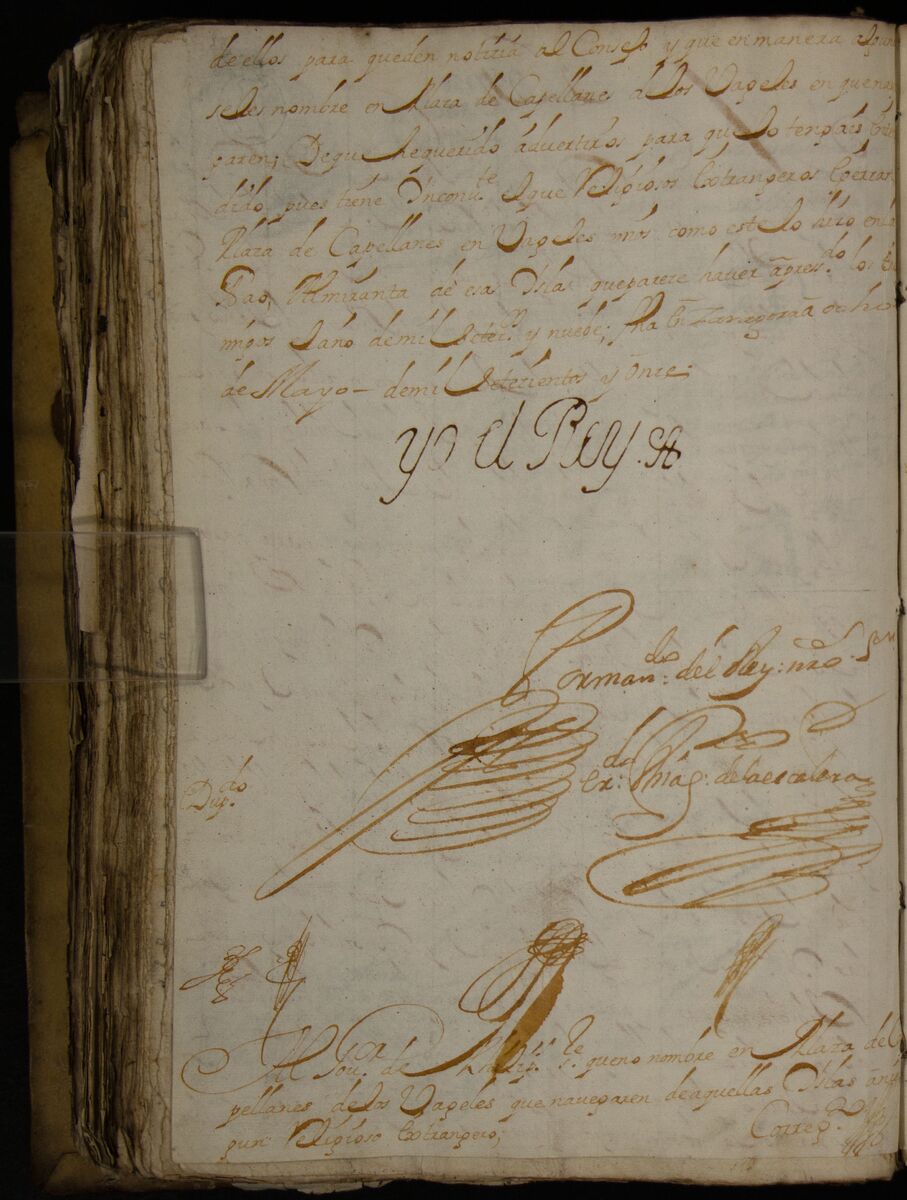 de ellos para que den notizia al Consejo y que en manera algun
se les nombre en Plaza de Capellanes a los Vageles en que nave
garen; De que he querido advertiros para que lo tengais Enten
dido, pues tiene Ynconv.te el que Religiosos Extrangeros Exerzan
Plaza de Capellanes en Vageles mios como este lo hizo en la
Nao, Almiranta de esas Yslas que parece haver apres.do los En
migos el año de mil settec.s y nueve; fha En Zaragoza a ocho
de Mayo - de mil Setecientos y Onze.
yo el Rey
Por man.do del Rey nro S.or
de la escalera
Dup.do
Al Gov.or de q.e que no nombre en Plaza de Ca
pellanes de los Vageles que navegaren de aquellas Yslas a nin
gun Religioso Extrangero;
Correg.da